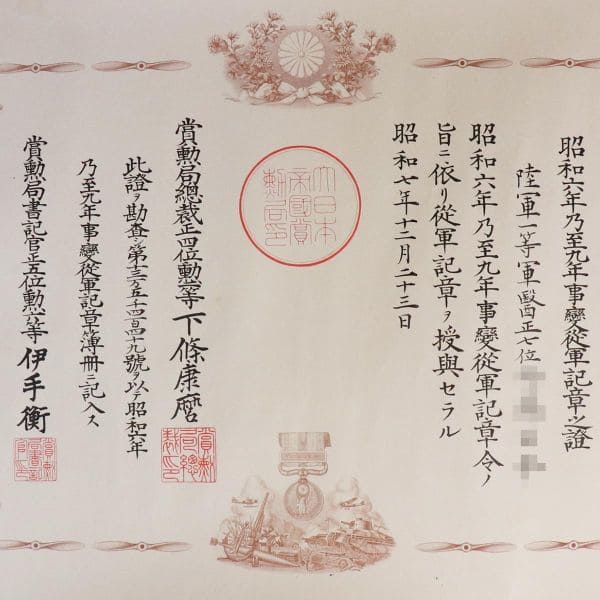 昭和六年乃至九年事變從軍記章之證
陸軍一等軍醫正七位
昭和六年乃至九年事變從軍記章令ノ
旨ニ依リ從軍記章ヲ授與セラル
昭和七年十二月二十三日
大日本
帝國賞
勲局印
賞勲局總裁正四位勲等下條康麿
賞勲
局總
裁印
此證ヲ勘査シ第十三万五千四百四十九號ヲ以テ昭和六年
乃至九年事變從軍記章簿冊ニ記入ス
賞勲局書記官正五位勲六等伊手衡
賞勲
局書記
官印